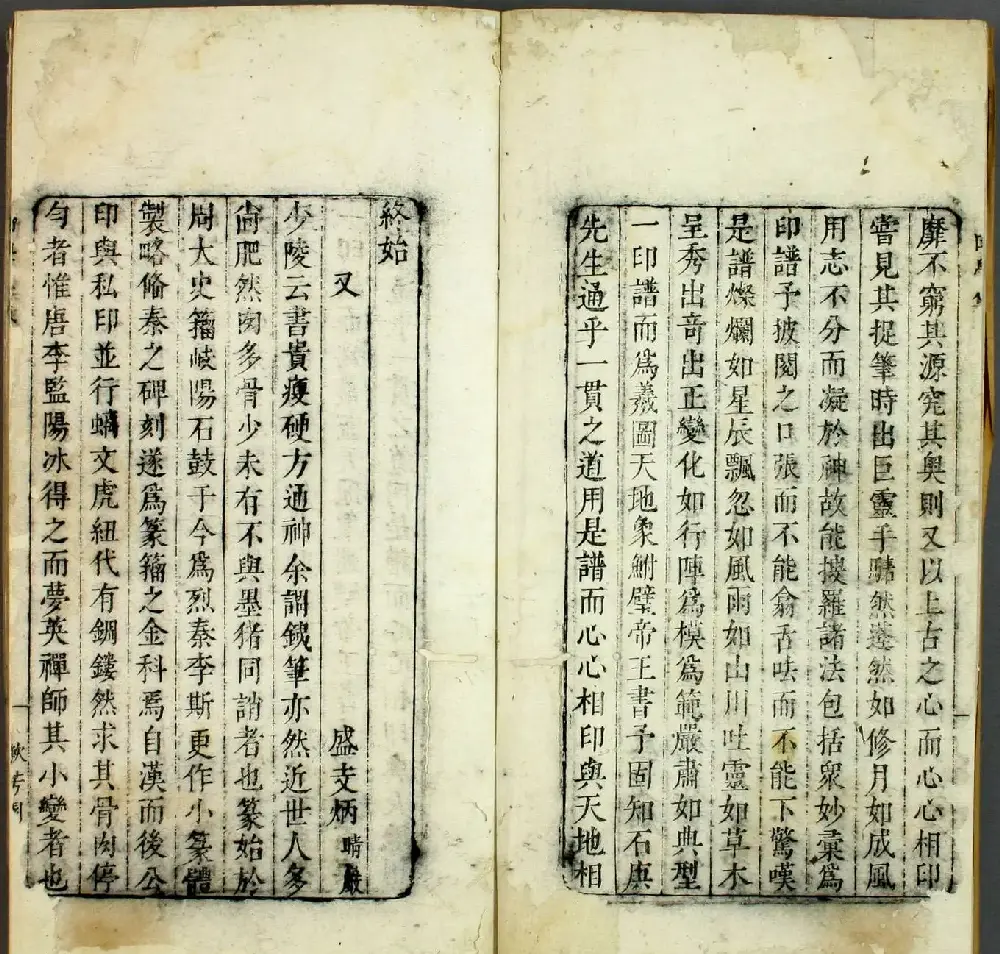 靡不窮其源究其奥則又以上古之心而心心相印
嘗見其捉筆時出巨靈手驌然蘧然如修月如成風
用志不分而凝於神故能搜羅諸法包括衆妙彙為
印譜予披閱之口張而不能翕舌呿而不能下驚嘆
是譜燦爛如星辰飄忽如風雨如山川吐靈如草木
呈秀出竒出正變化如行陣為模為範嚴肅如典型
一印譜而為羲圖天地象鮒璧帝王書予固知石庚
先生通乎一貫之道用是譜而心心相印與天地相
終始
又 盛支炳 晴巖
少陵云書貴瘦硬方通神余謂鐡筆亦然近世人多
尙肥然肉多骨少未有不與墨猪同誚者也篆始於
周大史籀岐陽石鼓于今為烈秦李斯更作小篆體
製略俻秦之碑刻遂為篆籀之金科焉自漢而後公
印與私印並行螭文虎紐代有鋼鏤然求其骨肉停
勻者惟唐李監陽冰得之而夢英禪師其小變者也